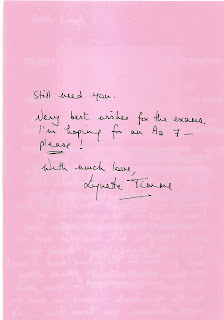 Still need you.
Very best wishes for the exams.
I'm hoping for an A2 7 —
please!
With much love,
Lynette